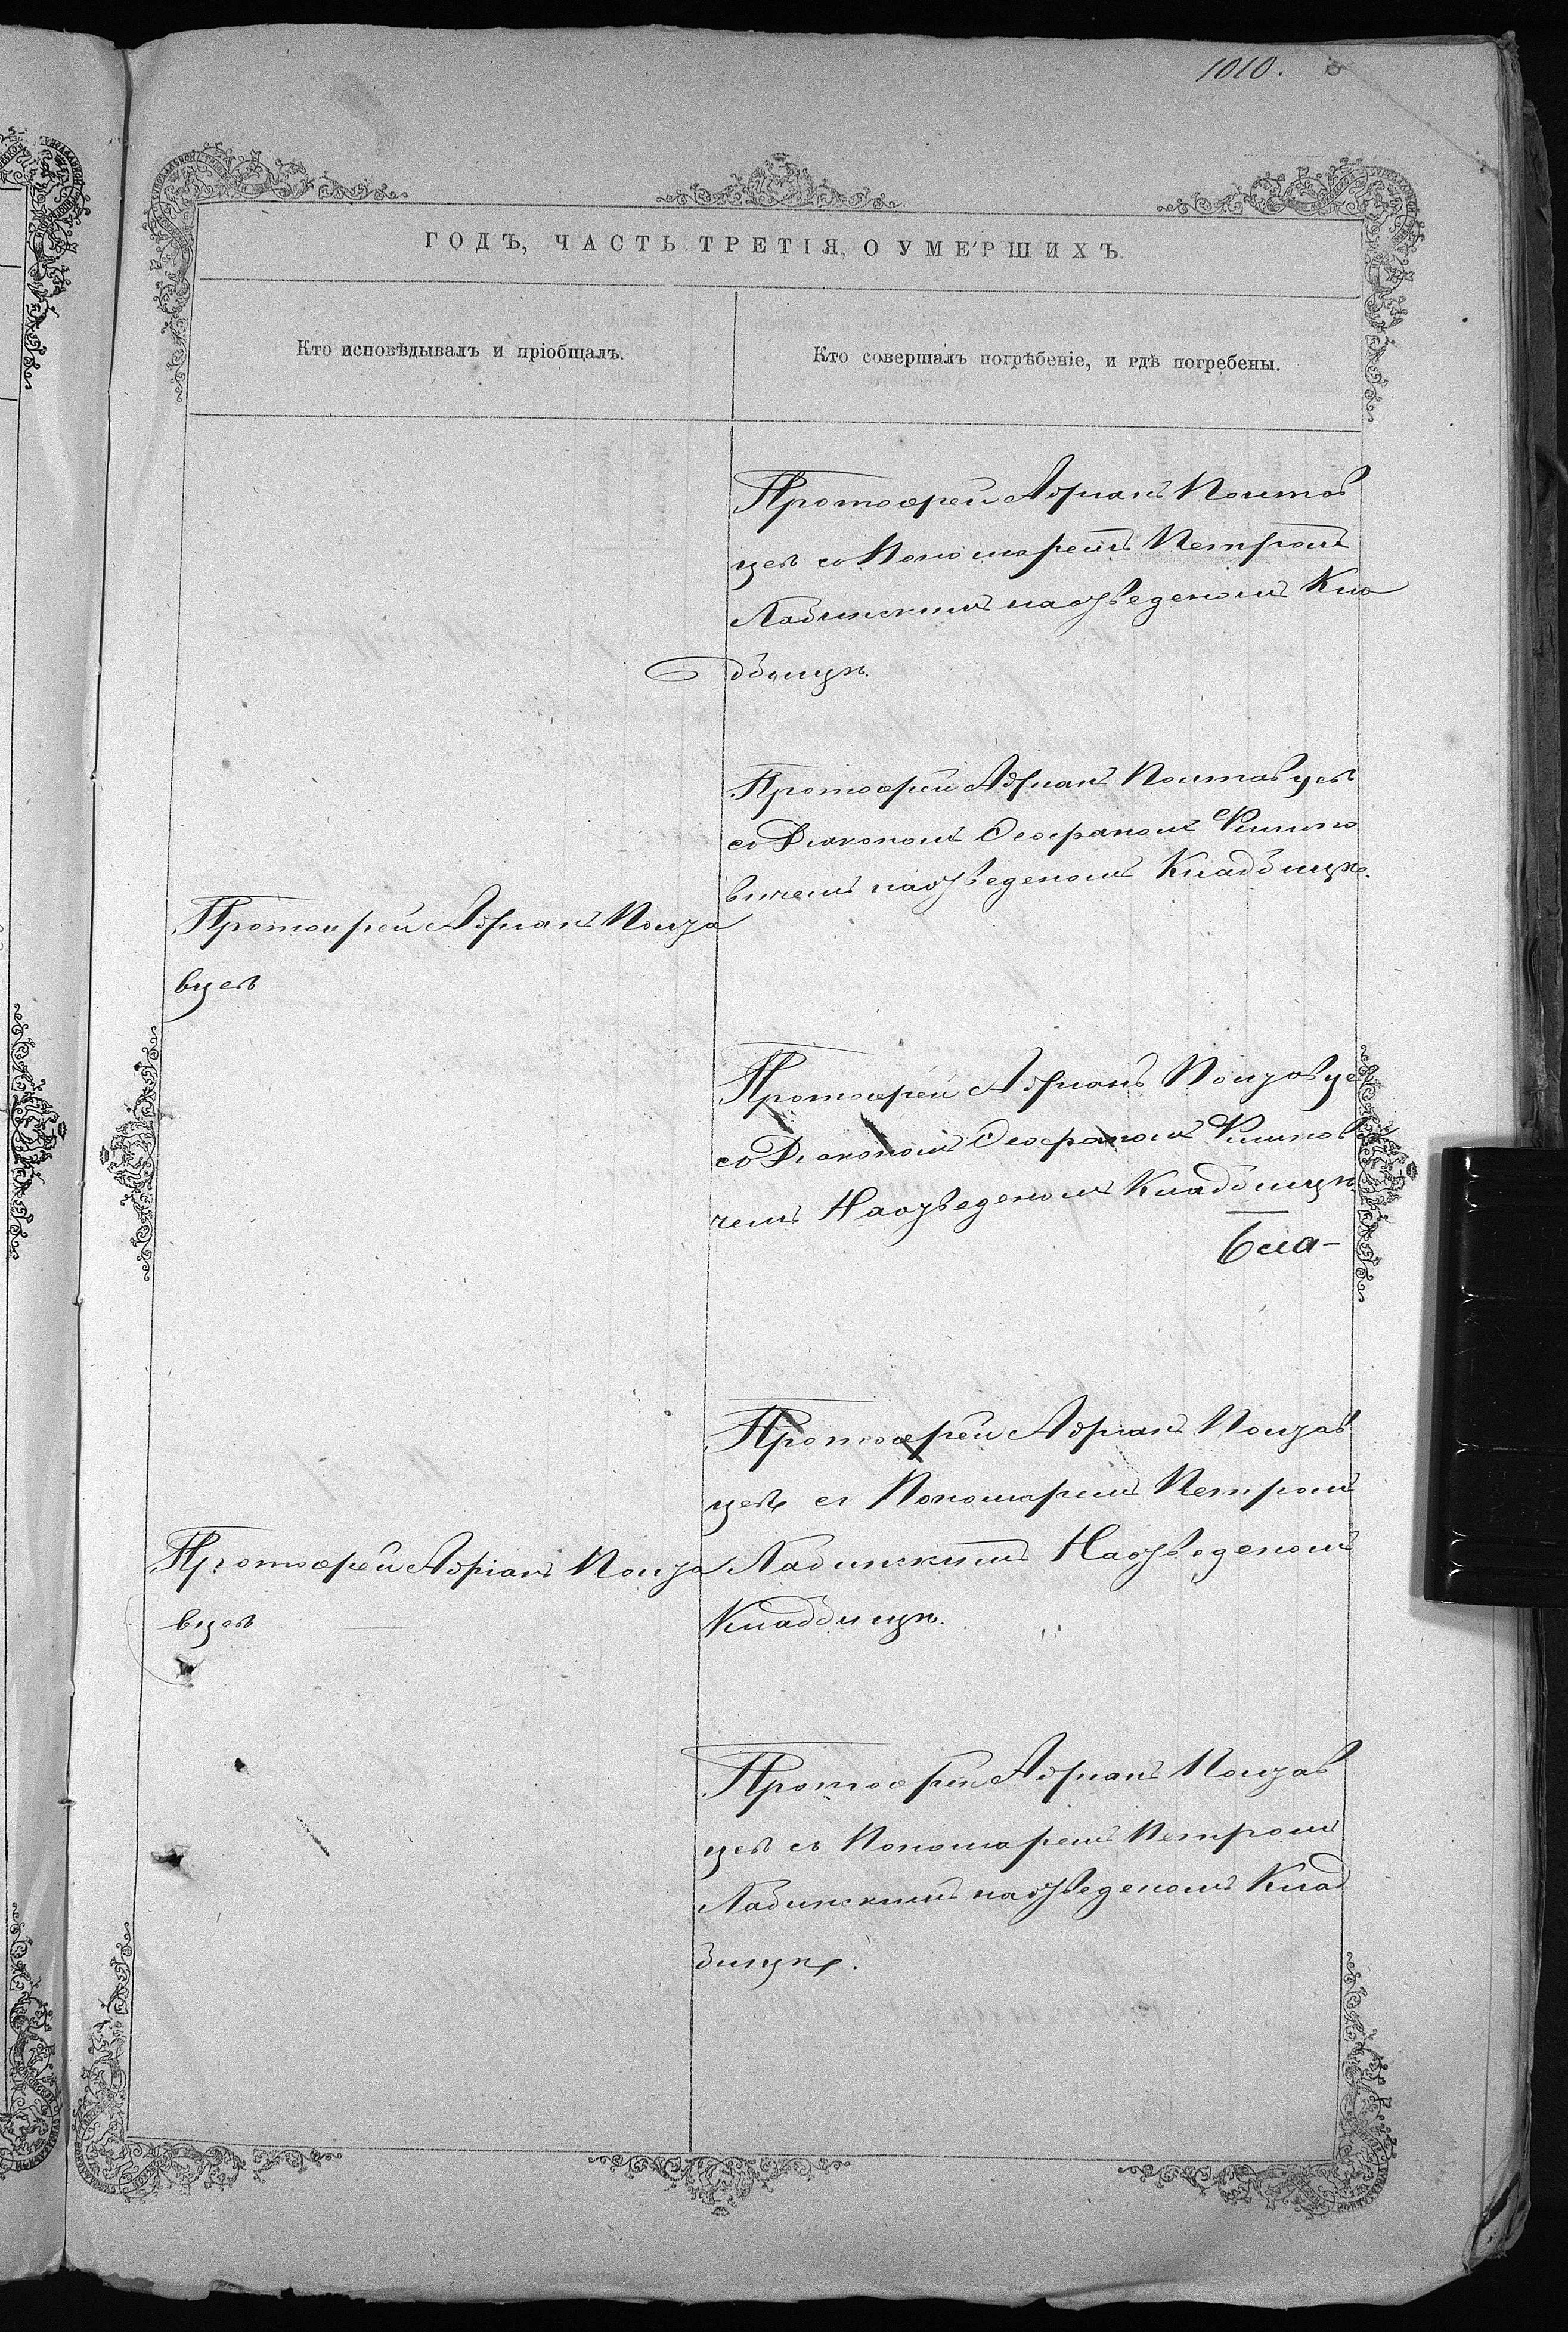 1010.
ГОДЪ, ЧАСТЬ ТРЕТІЯ, О УМЕРШИХЪ.
Кто исповѣдывалъ и пріобщалъ.
Кто совершалъ погрѣбеніе, и гдѣ погребены.
Протоерей Адрианъ Полтав
цев со Пономаремъ Петромъ
Лабинскимъ наотведеномъ Кла
дбищѣ.
Протоерей Адрианъ Полтавцев
со Диакономъ Феофаномъ
вичемъ наотведеномъ Кладбищѣ.
Протоерей Адрианъ Полта
вцев
Протоерей Адрианъ Полтавце
со Диакономъ Феофаномъ
чемъ Наотведеномъ Кладбищѣ
Протоерей Адрианъ Полтав
цев съ Пономаремъ Петромъ
Лабинскимъ Наотведеномъ
Кладбищѣ.
Протоерей Адріанъ Полта
вцев
Протоерей Адрианъ Полтав
цев съ Пономаремъ Петромъ
Лабинскимъ наотведеномъ Клад
бищѣ.